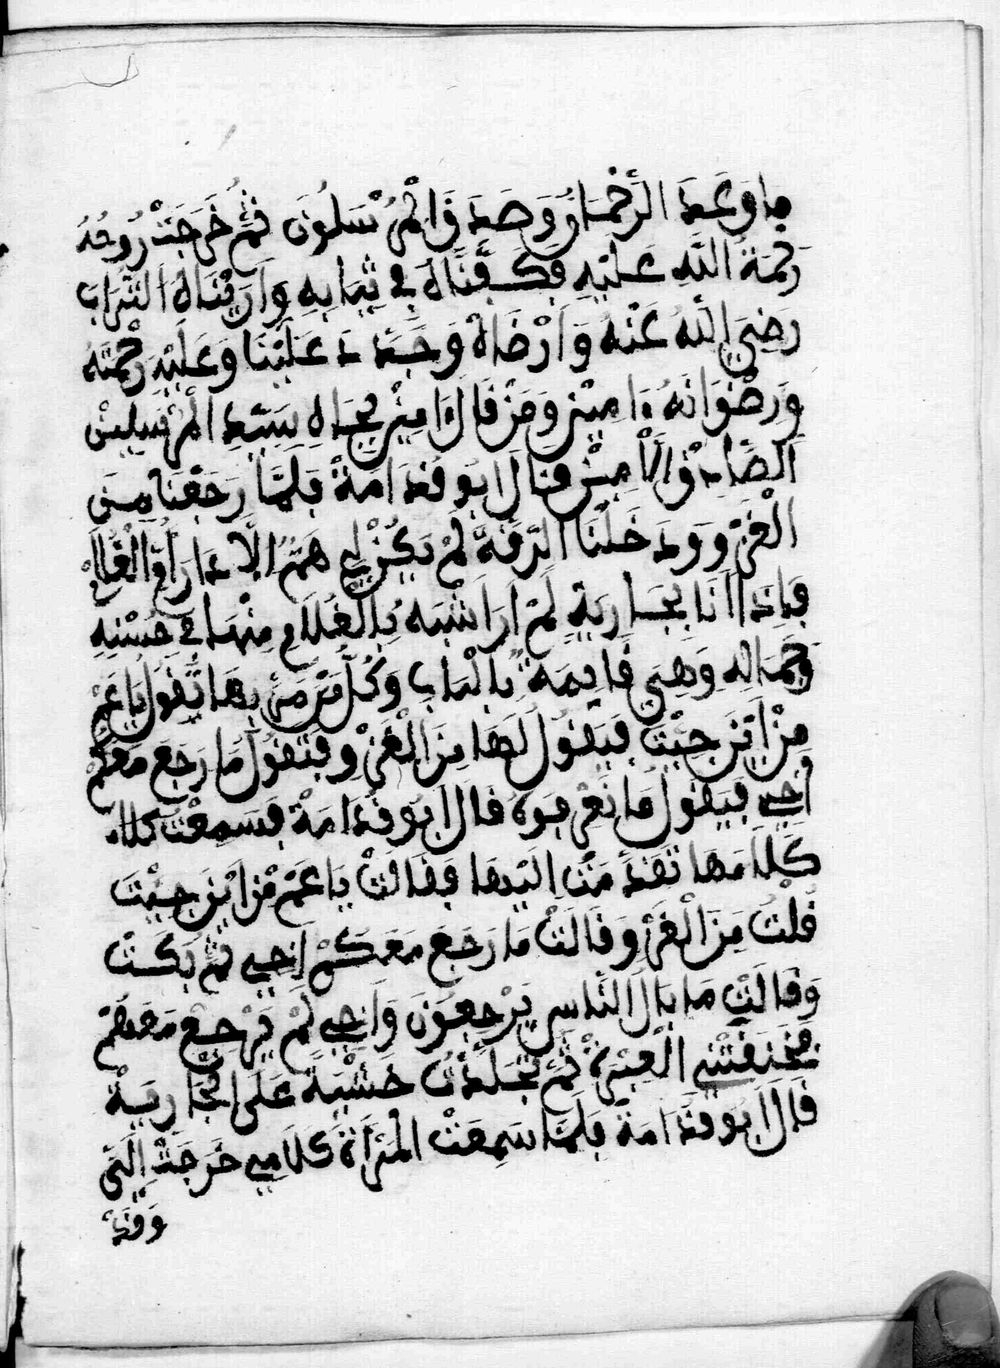 ما وَعَدَ الرَّحْمَٰنُ وَصَدَقَ الْمُرْسَلُونَ ثُمَّ خَرَجَتْ رُوحُهُ
رَحْمَةُ اللَّهِ عَلَيْهِ فَكَفَّنَّاهُ فِي ثِيَابِهِ وَارَيْنَاهُ التُّرَابَ
رَضِيَ اللَّهُ عَنْهُ وَأَرْضَاهُ وَجَدَّدَ عَلَيْنَا وَعَلَيْهِ رَحْمَتَهُ
وَرِضْوَانَهُ ءَامِينْ وَمَنْ قَالَ ءَامِينْ بِجَاهِ سَيِّدِ الْمُرْسَلِينْ
الصَّادِقِ الْأَمِينْ قَالَ أَبُو قُدَامَةَ فَلَمَّا رَجَعْنَا مِنَ
الْغَزْوِ وَدَخَلْنَا الرَّقَّةَ لَمْ يَكُنْ لِي هَمٌّ إِلَّا دَارَ أُمِّ الْغُلَامْ
فَإِذَا أَنَا بِجَارِيَةٍ لَمْ أَرَ أَشْبَهَ بِالْغُلَامِ مِنْهَا فِي حُسْنِهِ
وَجَمَالِهِ وَهِيَ قَايِمَةٌ بِالْبَابِ وَكُلُّ مَنْ مَرَّ بِهَا تَقُولُ يَا عَمْ
مِنْ أَيْنَ جِيْتَ فَيَقُولُ لَهَا مِنَ الْغَزْوِ فَتَقُولُ مَا رَجَعَ مَعَكُمْ
أَخِي فَيَقُولُ مَا نَعْرِفُوهُ قَالَ أَبُو قُدَامَةَ فَسَمِعْتُ كلا
كَلَامَهَا تَقَدَّمْتُ إِلَيْهَا فَقَالَتْ يَا عَمْ مِنْ أَيْنَ جِيْتَ
قُلْتُ مِنَ الْغَزْوِ قَالَتْ مَا رَجَعَ مَعَكُمْ أَخِي ثُمَّ بَكَتْ
وَقَالَتْ مَا بَالُ النَّاسِ يَرْجِعُونَ وَأَخِي لَمْ يَرْجِعْ مَعَهُمْ
فَخَنَقَتْنِي الْعَبْرَةُ ثُمَّ تَجَلَّدْتُ خَشْيَةً عَلَى الْجَارِيَةْ
قَالَ أَبُو قُدَامَةَ فَلَمَّا سَمِعَتْ الْمَرْأَةُ كَلَامِي خَرَجَتْ إِلَيَّ
وَقَدْ